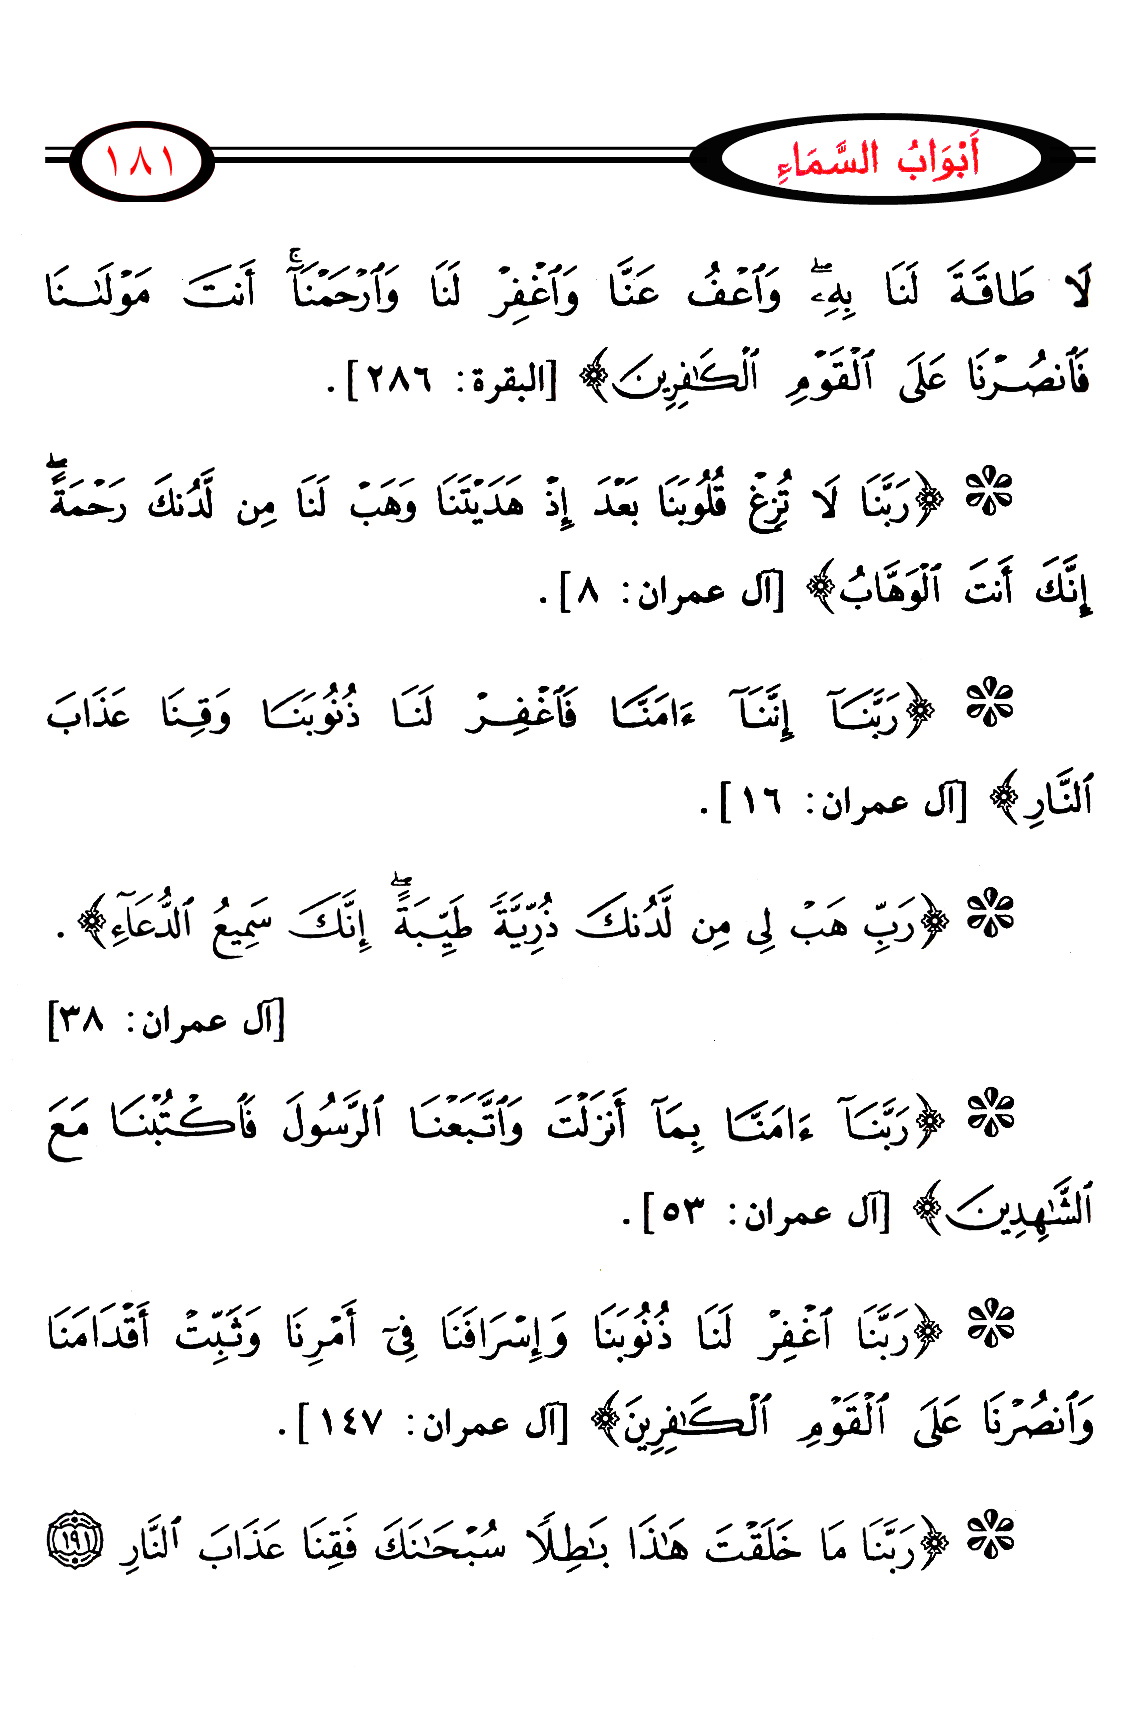 أَبْوَابُ السَّمَاءِ ١٨١
لَا طَاقَةَ لَنَا بِهِۦۖ وَٱعْفُ عَنَّا وَٱغْفِرْ لَنَا وَٱرْحَمْنَآۚ أَنتَ مَوْلَىٰنَا
فَٱنصُرْنَا عَلَى ٱلْقَوْمِ ٱلْكَٰفِرِينَ﴾ [البقرة: ٢٨٦].
﴿رَبَّنَا لَا تُزِغْ قُلُوبَنَا بَعْدَ إِذْ هَدَيْتَنَا وَهَبْ لَنَا مِن لَّدُنكَ رَحْمَةًۖ
إِنَّكَ أَنتَ ٱلْوَهَّابُ﴾ [آل عمران: ٨].
﴿رَبَّنَآ إِنَّنَآ ءَامَنَّا فَٱغْفِرْ لَنَا ذُنُوبَنَا وَقِنَا عَذَابَ
ٱلنَّارِ﴾ [آل عمران: ١٦].
﴿رَبِّ هَبْ لِى مِن لَّدُنكَ ذُرِّيَّةً طَيِّبَةًۖ إِنَّكَ سَمِيعُ ٱلدُّعَآءِ﴾.
[آل عمران: ٣٨]
﴿رَبَّنَآ ءَامَنَّا بِمَآ أَنزَلْتَ وَٱتَّبَعْنَا ٱلرَّسُولَ فَٱكْتُبْنَا مَعَ
ٱلشَّٰهِدِينَ﴾ [آل عمران: ٥٣].
﴿رَبَّنَا ٱغْفِرْ لَنَا ذُنُوبَنَا وَإِسْرَافَنَا فِىٓ أَمْرِنَا وَثَبِّتْ أَقْدَامَنَا
وَٱنصُرْنَا عَلَى ٱلْقَوْمِ ٱلْكَٰفِرِينَ﴾ [آل عمران: ١٤٧].
﴿رَبَّنَا مَا خَلَقْتَ هَٰذَا بَٰطِلًا سُبْحَٰنَكَ فَقِنَا عَذَابَ ٱلنَّارِ ١٩١